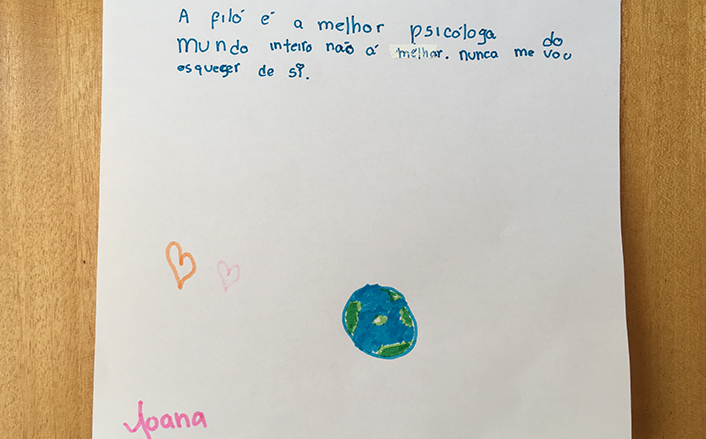 A filó é a melhor psicóloga do
mundo inteiro não á melhor. nunca me vou
esquecer de si.
Joana